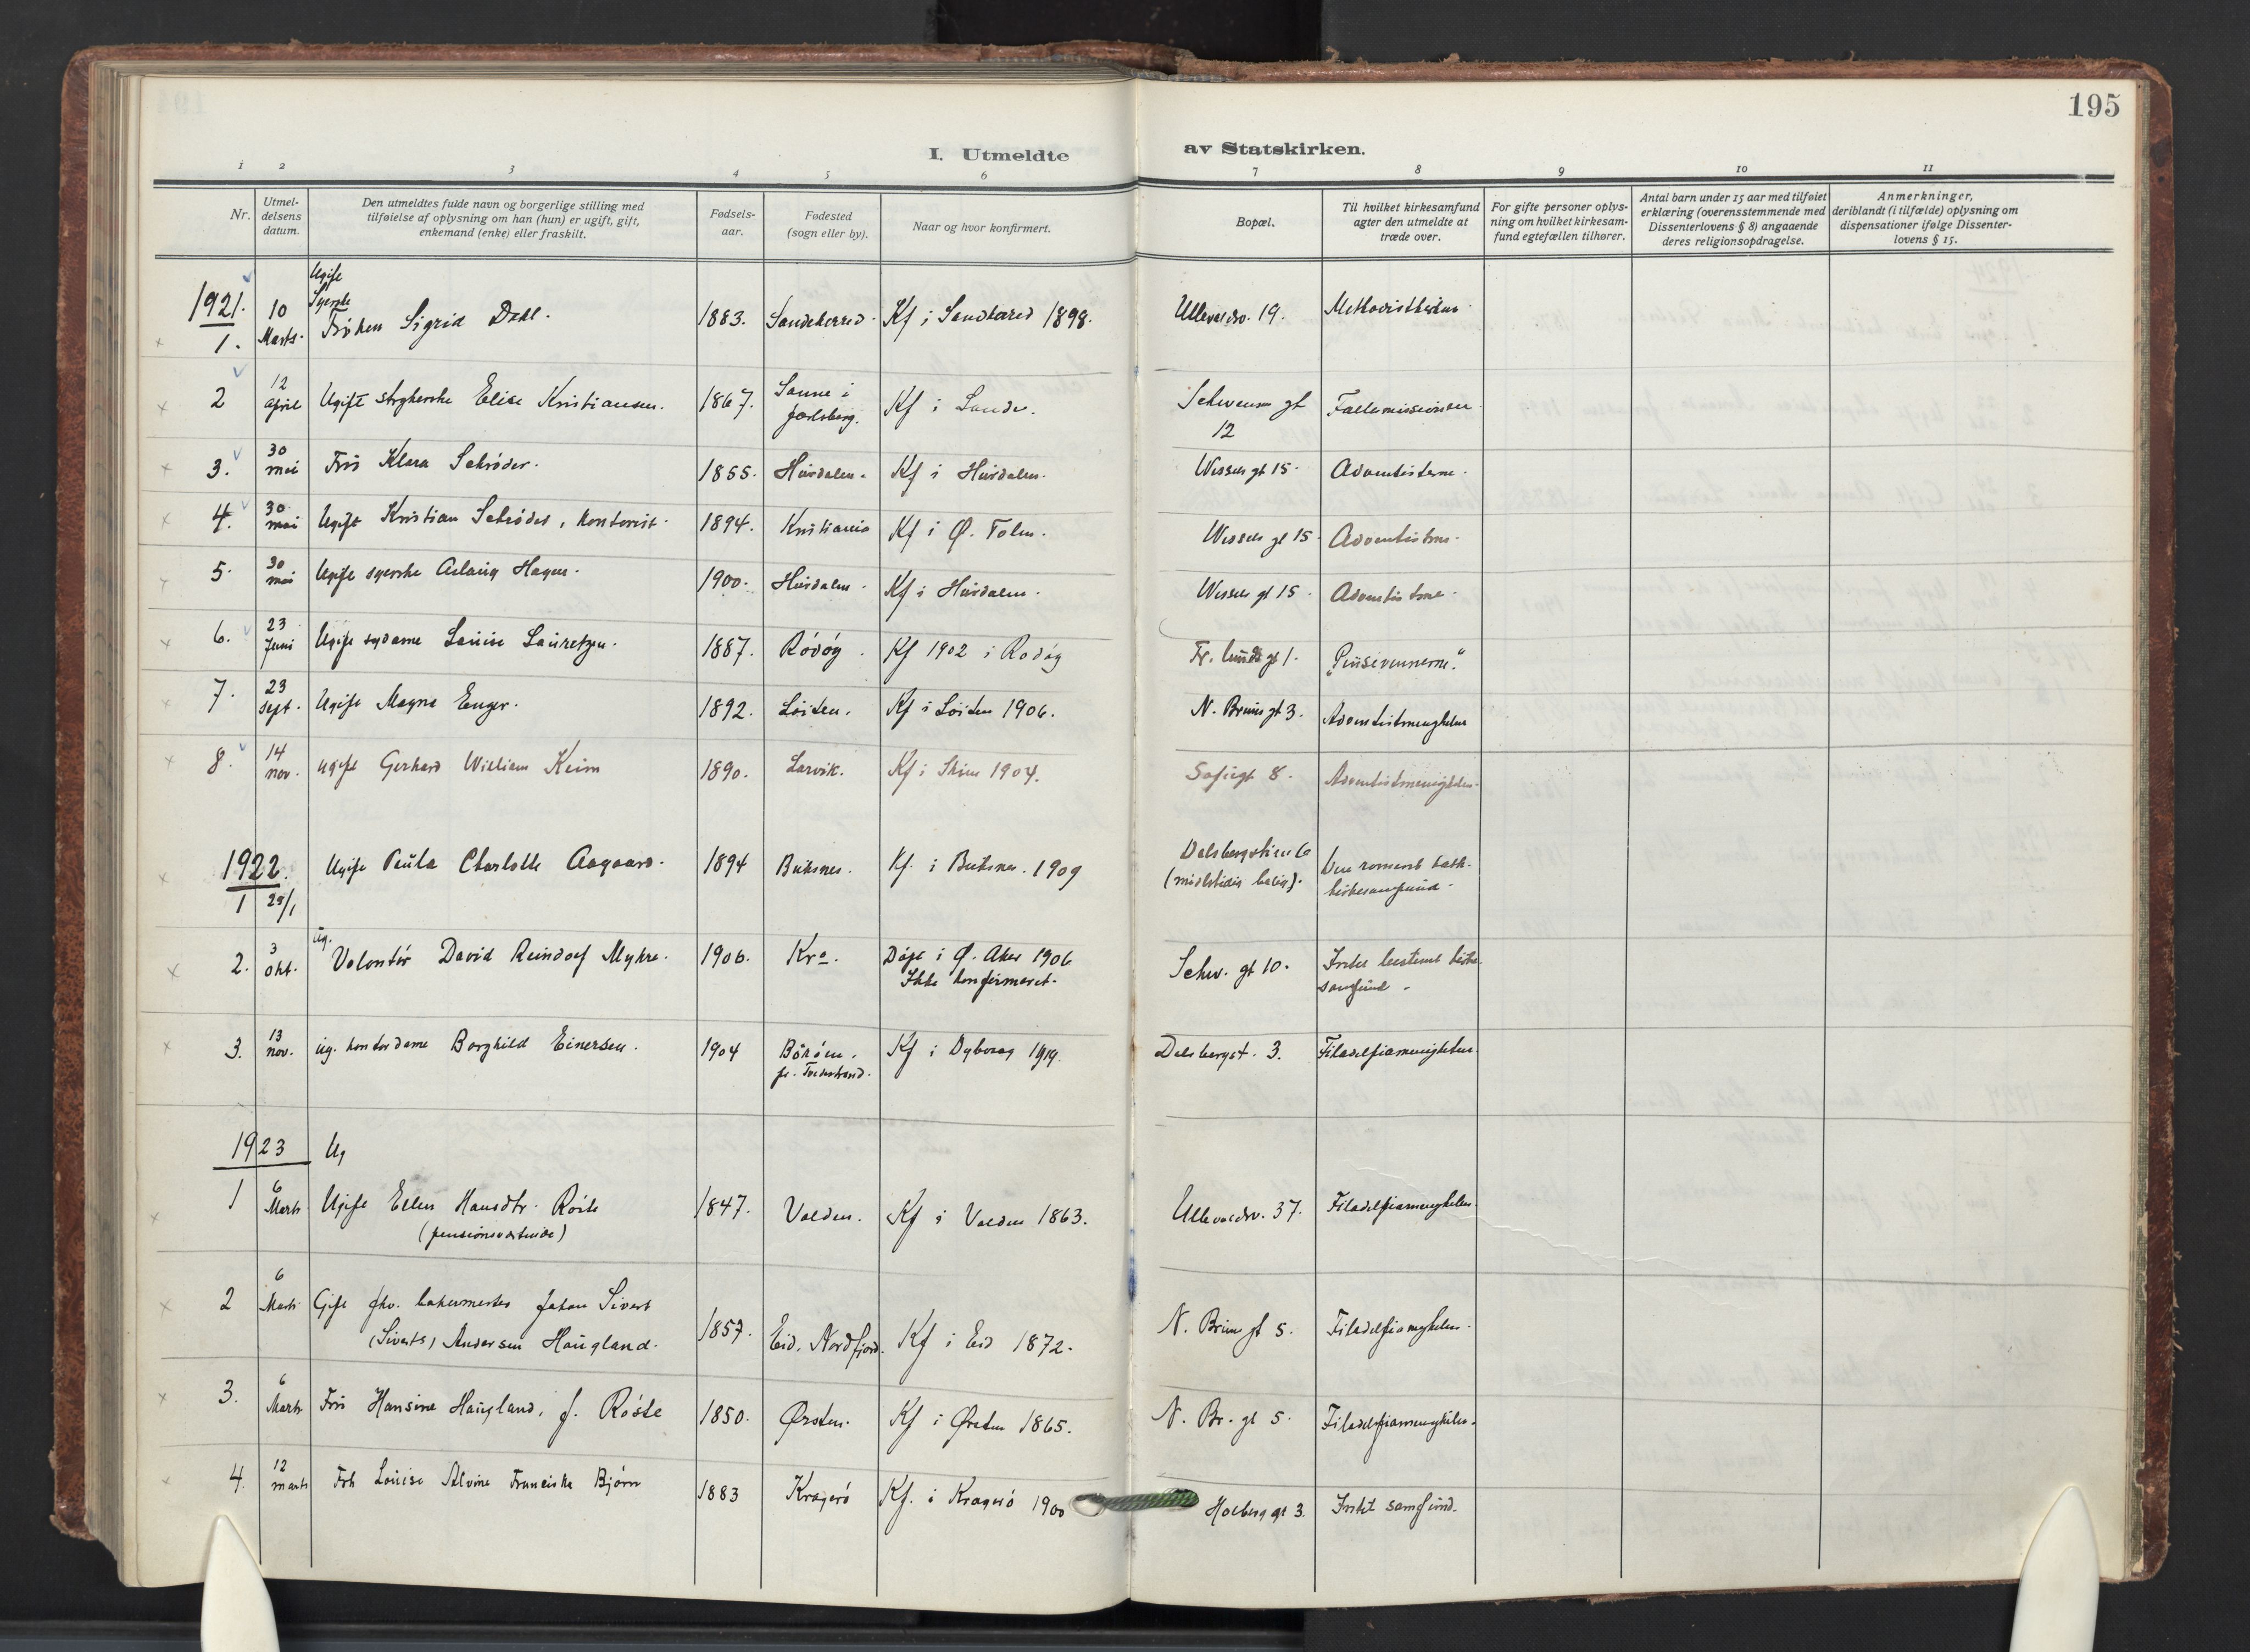 195
I. Utmeldte av Statskirken.
1 2 3 4 5 6 7 8 9 10 11
Nr.
Utmel-
delsens
datum.
Den utmeldtes fulde navn og borgerlige stilling med
tilføielse af oplysning om han (hun) er ugift, gift,
enkemand (enke) eller fraskilt.
Fødsels-
aar.
Fødested
(sogn eller by).
Naar og hvor konfirmert.
Bopæl.
Til hvilket kirkesamfund
agter den utmeldte at
træde over.
For gifte personer oplys-
ning om hvilket kirkesam-
fund egtefællen tilhører.
Antal barn under 15 aar med tilføiet
erklæring (overensstemmende med
Dissenterlovens § 8) angaaende
deres religionsopdragelse.
Anmerkninger,
deriblandt (i tilfælde) oplysning om
dispensationer ifølge Dissenter-
lovens § 15.
Ugift
Syerske
1921. 10 Frøken Sigrid Dahl. 1883. Sandeherred. Kf i Sandhered 1898. Ullevaldsv. 19.
1. Marts.
2 12 april Ugift strykerske Elise Kristiansen. 1867. Sanne i Kf i Sande. Schwensens gt Fællesmissionen
Jarlsberg. 12
3. 30 mai Frü Klara Schrøder. 1855. Hürdalen. Kf i Hürdalen. Wessels gt 15. Adventisterne.
4. 30 mai Ugift Kristian Schrøder, kontorist. 1894. Kristiania Kf i Ø. Toten. Wessels gt 15. Adventistrne.
5. 30 mai Ugift syerske Aslaug Hagen. 1900. Hürdalen. Kf i Hürdalen. Wessels gt 15. Adventistrne.
6. 23 Juni Ugift sydame Loüise Laüretzen. 1887. Rödöy. Kf 1902 i Rødöy Fr. Lunds gt 1. "Pinsevennerne."
7. 23 sept. Ugift Magna Enger. 1892. Löiten. Kf i Löiten 1906. N. Bruns gt 3. Adventistmenigheten
8. 14 nov. ugift Gerhard William Keim 1890. Larvik. Kf i Skien 1904. Sofiegt 8. Adventistmenigheten.
1922. Ugift Paüla Charlotte Aagaard. 1894 Buksnes. Kf. i Buksnes. 1909 Dalsbergstien 6 Den romersk kath.
1 25/1 (midlertidig bolig). kirkesamfünd.
2. 3 okt. üg. Volontör David Reindorf Myhre. 1906. Kra. Döpt i Ø. Aker 1906 Schw. gt 10. Intet bestemt kirke-
Ikke konfirmeret. samfünd.
3. 13 nov. üg. kontordame Borghild Einersen. 1904 Kf i Dybvaag 1919. Dalsbergst. 3. Filadelfiamenigheten
pr. Tvedestrand.
1923 Ug
1 6 Marts Ugift Ellen Hansdtr. Röste 1847. Volden. Kf i Volden 1863. Ullevaldsv. 37. Filadelfiamenigheten.
(pensionsværtinde)
2 6 Marts Gift fhv. bakermester Johan Sivert
(Siverts) Andersen Haügland. 1857. Eid, Nordfjord. Kf i Eid 1872. N. Brüns gt 5. Filadelfiamgheten.
3. 6 Marts Frü Hansine Haügland, f. Röste 1850. Ørsten. Kf i Ørsten 1865. N. Br. gt 5. Filadelfiamenigheten.
4. 12 marts Frk Loüise Alvine Franciska Björn 1883 Kragerö Kf. i Kragerö 1900 Holberg gt 3. Intet samfünd.